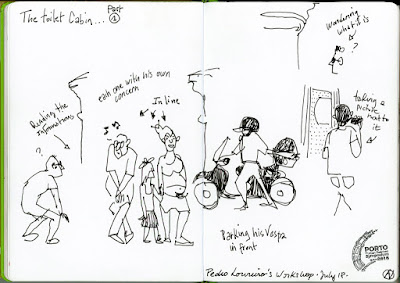 The toilet Cabin...
Part
1
Reading the
Informations
?
Eah one with his own
concern
In line
Wandering
what it is
?
taking a
picture next to
it
Parking his Vespa
in front
Pedro Loureiro's Workshop - July 18 -
PORTO
2018